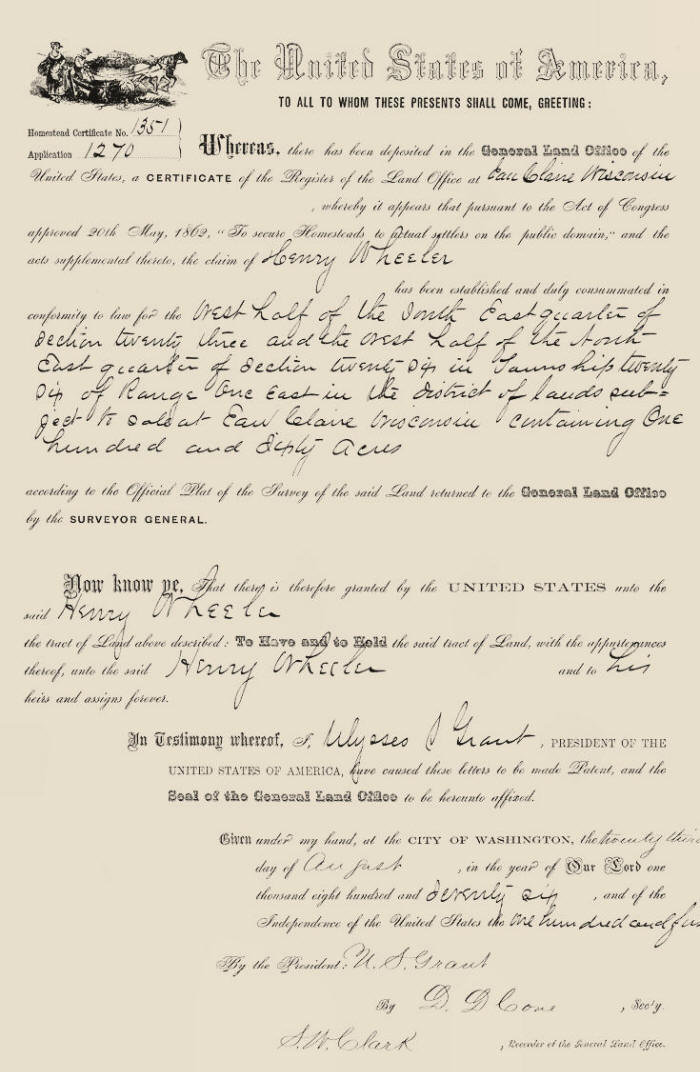 The United States of America,
TO ALL TO WHOM THESE PRESENTS SHALL COME, GREETING:
Homestead Certificate No. 1351
Application 1270
Whereas, there has been deposited in the General Land Office of the
United States, a CERTIFICATE of the Register of the Land Office at Eau Claire Wisconsin
, whereby it appears that pursuant to the Act of Congress
approved 20th May, 1862, "To secure Homesteads to actual settlers on the public domain," and the
acts supplemental thereto, the claim of Henry Wheeler
has been established and duly consummated in
conformity to law for the West half of the South East quarter of
Section twenty three and the West half of the North
East quarter of Section twenty Six in Township twenty
Six of Range One East in the district of lands sub=
ject to sale at Eau Claire Wisconsin containing One
hundred and Sixty Acres
according to the Official Plat of the Survey of the said Land returned to the General Land Office
by the SURVEYOR GENERAL.
Now know ye, That there is therefore granted by the UNITED STATES unto the
said Henry Wheeler
the tract of Land above described: To Have and to Hold the said tract of Land, with the appurtenances
thereof, unto the said Henry Wheeler and to his
heirs and assigns forever.
In Testimony whereof, I, Ulysses S Grant, PRESIDENT OF THE
UNITED STATES OF AMERICA, have caused these letters to be made Patent, and the
Seal of the General Land Office to be hereunto affixed.
Given under my hand, at the CITY OF WASHINGTON, the twenty third
day of August, in the year of Our Lord one
thousand eight hundred and Seventy six, and of the
Independence of the United States the One hundred and
By the President: U. S. Grant
By D. D Cone, Sec'y.
S. W. Clark, Recorder of the General Land Office.